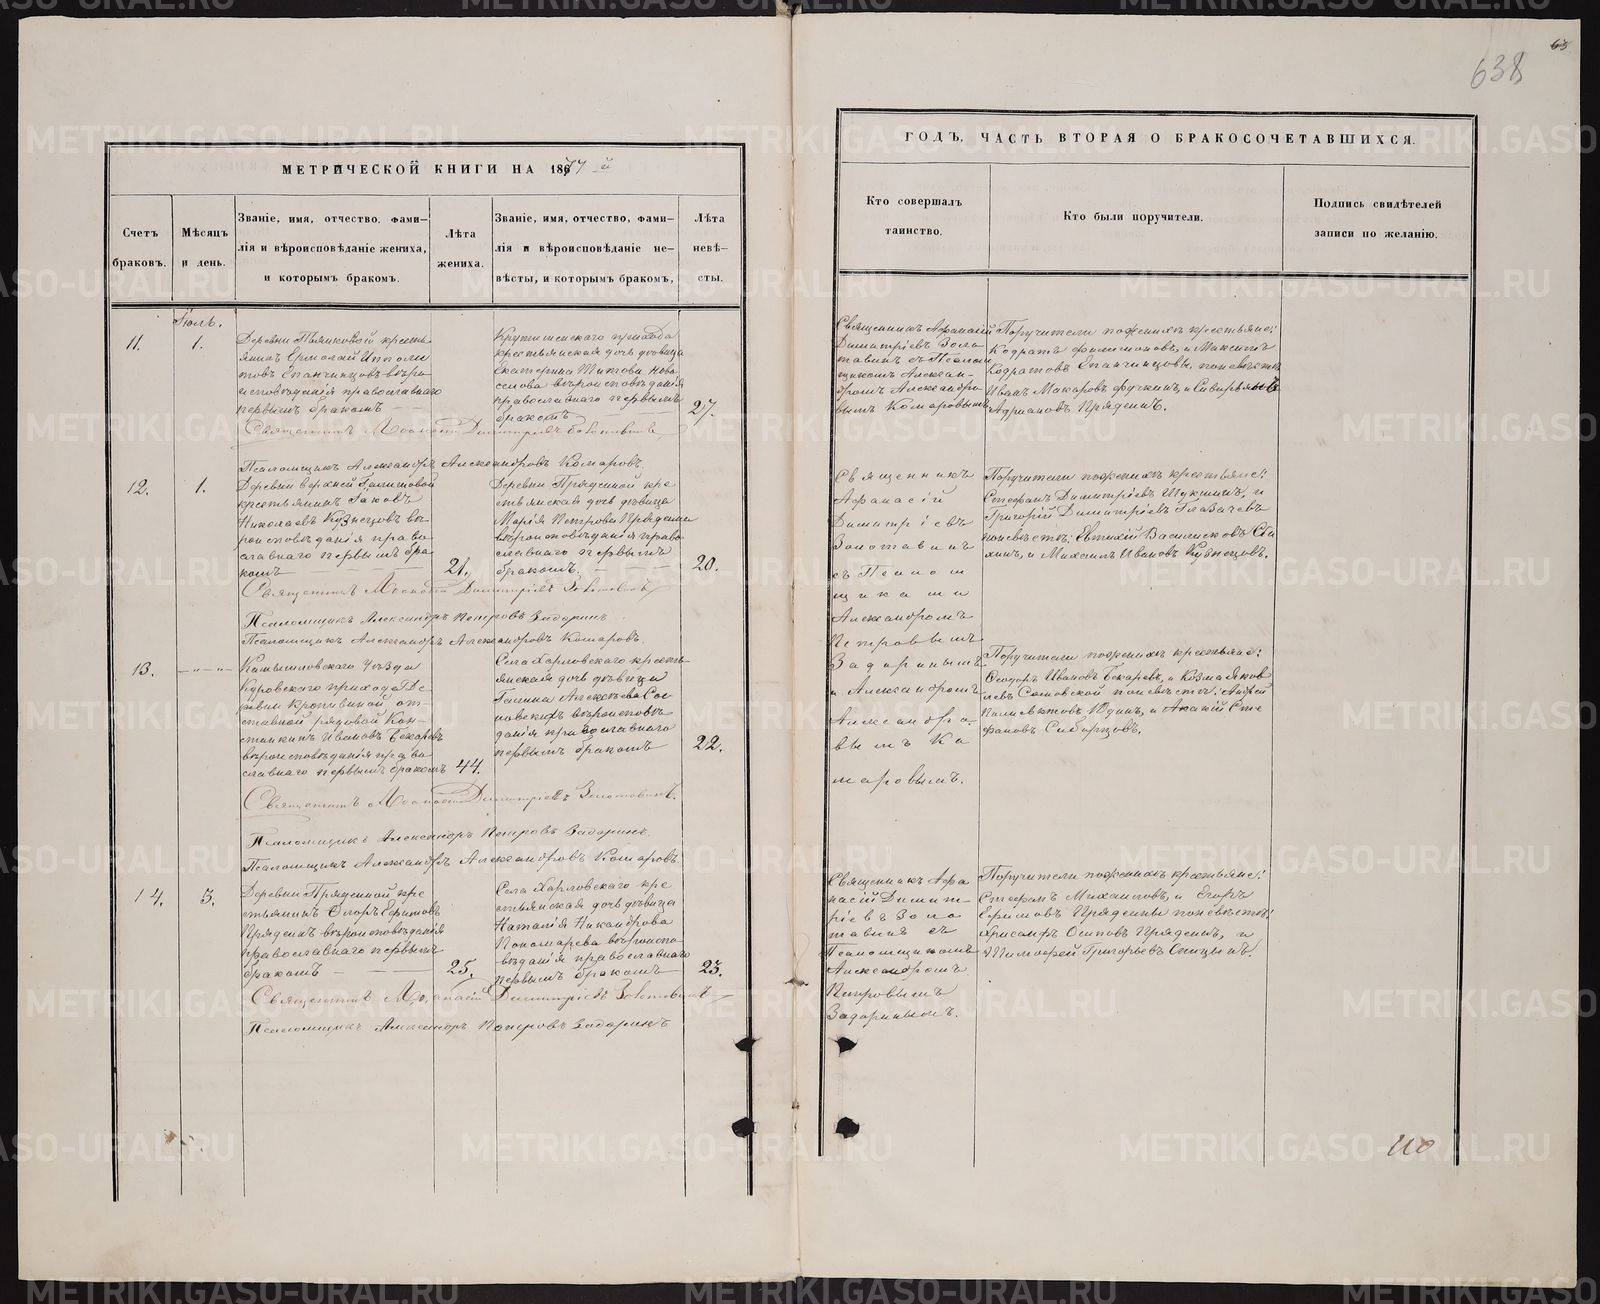 63
638
МЕТРИЧЕСКОЙ КНИГИ НА 1877 й
ГОДЪ, ЧАСТЬ ВТОРАЯ О БРАКОСОЧЕТАВШИХСЯ.
Счетъ браковъ.
Мѣсяцъ и день.
Званіе, имя, отчество, фами-
лія и вѣроисповѣданіе жениха,
и которымъ бракомъ.
Лѣта
жениха.
Званіе, имя, отчество, фами-
лія и вѣроисповѣданіе не-
вѣсты, и которымъ бракомъ,
Лѣта
невѣ-
сты.
Кто совершалъ
таинство.
Кто были поручители.
Подпись свидѣтелей
записи по желанію.
Іюль.
11.
1.
крестья
янинъ Ермолай Иппали
товъ Епанчинцовъ вѣро
исповѣданія православнаго
первымъ бракомъ
Крутишенскаго прихода
крестьянская дочь дѣвица
Екатерина Титова Ново
селова вѣроисповѣданія
православнаго первымъ
бракомъ
27.
Священникъ Аѳанасій
Димитріевъ Золо
тавинъ съ Псалом
щикомъ Алексан-
дромъ Александро
вымъ Комаровымъ
Поручители по женихѣ крестьяне:
Кодратъ Филимоновъ, и Максимъ
Кодратовъ Епанчинцовы, по невѣстѣ
Иванъ Макаровъ
Адриановъ Пряденъ.
Священникъ Аѳанасій Димитріевъ Золотавинъ
Псаломщикъ Александръ Александровъ Комаровъ.
12.
1.
Деревни верхней
крестьянинъ Іаковъ
Николаевъ Кузнецовъ вѣ
роисповѣданія право
славнаго первымъ бра
комъ
21.
Деревни Пряденной кре
стьянская дочь дѣвица
Марія Петрова Прядеина
вѣроисповѣданія право
славнаго первымъ
бракомъ.
20.
Священникъ
Аѳанасій
Димитріевъ
Золотавинъ
съ Псалом
щиками
Александромъ
Петровымъ
Задоринымъ
и Александромъ
Александро-
вымъ Ка
маровымъ.
Поручители по женихѣ крестьяне:
Стефанъ Димитріевъ Щукинъ, и
Григорій Димитріевъ
по невѣстѣ: Евтихій
и Михаилъ Ивановъ Кузнецовъ.
Священникъ Аѳанасій Димитріевъ Золотавинъ
Псаломщикъ Александръ Петровъ Задоринъ
Псаломщикъ Александръ Александровъ Комаровъ.
13.
— „ — „ —
Камышловскаго Уѣзда
Куровскаго прихода Де
ревни Крапивиной от
ставной рядовой Кон-
стантинъ Ивановъ Бекаревъ
вѣроисповѣданія право
славнаго первымъ бракомъ
44.
Села Харловскаго кресть
янская дочь дѣвица
Галина Алексѣева Сос
новскихъ вѣроисповѣ
данія православнаго
первымъ бракомъ
22.
Поручители по женихѣ крестьяне:
Ѳеодоръ Ивановъ Бекаревъ, и Козма Яков
левъ Сосновской по невѣстѣ: Андрей
Юдинъ, и Акакій Сте
фановъ Сиборцовъ.
Священникъ Аѳанасій Димитріевъ Золотавинъ.
Псаломщикъ Александръ Петровъ Задоринъ.
Псаломщикъ Александръ Александровъ Комаровъ
14.
3.
Деревни Пряденной кре
стьянинъ Егоръ Ефимовъ
Пряденъ вѣроисповѣданія
православнаго первымъ
бракомъ
25.
Села Харловскаго кре
стьянская дочь дѣвица
Наталія Никандрова
Пономарева вѣроиспо
вѣданія православнаго
первымъ бракомъ
23.
Священникъ Аѳа
насій Димит-
ріевъ Золо
тавинъ съ
Псаломщикомъ
Александромъ
Петровымъ
Задоринымъ.
Поручители по женихѣ крестьяне:
Стефанъ Михаиловъ, и Егоръ
Ефимовъ Прядеины по невѣстѣ:
Хрисанфъ Осиповъ Пряденъ, и
Тимофей Григорьевъ Спицынъ.
Священникъ Аѳанасій Димитріевъ Золотавинъ
Псаломщикъ Александръ Петровъ Задоринъ
METRIKI.GASO-URAL.RU